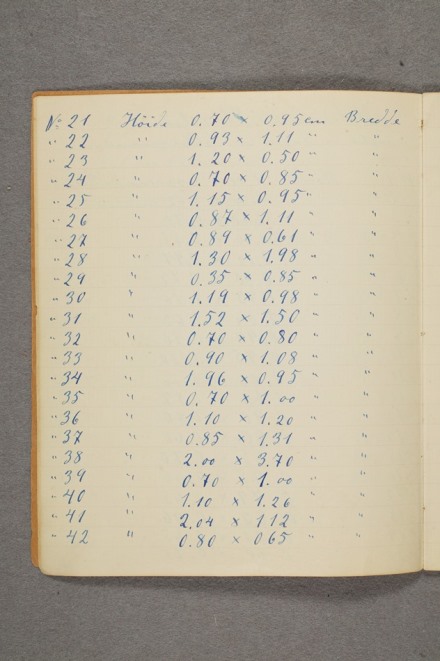 No 21 Höide 0.70 × 0.95 cm Bredde
" 22 " 0.93 × 1.11 " "
" 23 " 1.20 × 0.50 " "
" 24 " 0.70 × 0.85 " "
" 25 " 1.15 × 0.95 " "
" 26 " 0.87 × 1.11 " "
" 27 " 0.89 × 0.61 " "
" 28 " 1.30 × 1.98 " "
" 29 " 0.35 × 0.85 " "
" 30 " 1.19 × 0.98 " "
" 31 " 1.52 × 1.50 " "
" 32 " 0.70 × 0.80 " "
" 33 " 0.90 × 1.08 " "
" 34 " 1.96 × 0.95 " "
" 35 " 0.70 × 1.00 " "
" 36 " 1.10 × 1.20 " "
" 37 " 0.85 × 1.31 " "
" 38 " 2.00 × 3.70 " "
" 39 " 0.70 × 1.00 " "
" 40 " 1.10 × 1.26 " "
" 41 " 2.04 × 112 " "
" 42 " 0.80 × 065 " "